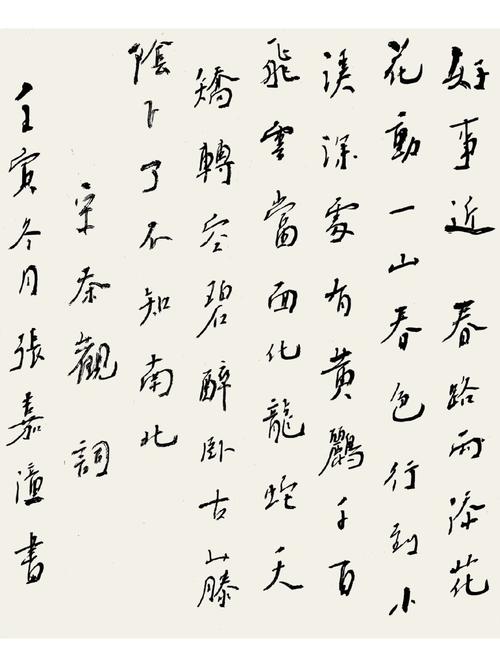 好事近 春路雨添花
花動一山春色行到小
溪深處有黃鸝千百
飛雲當面化龍蛇夭
矯轉空碧醉臥古藤
陰下了不知南北
宋秦觀詞
壬寅冬月張嘉潼書